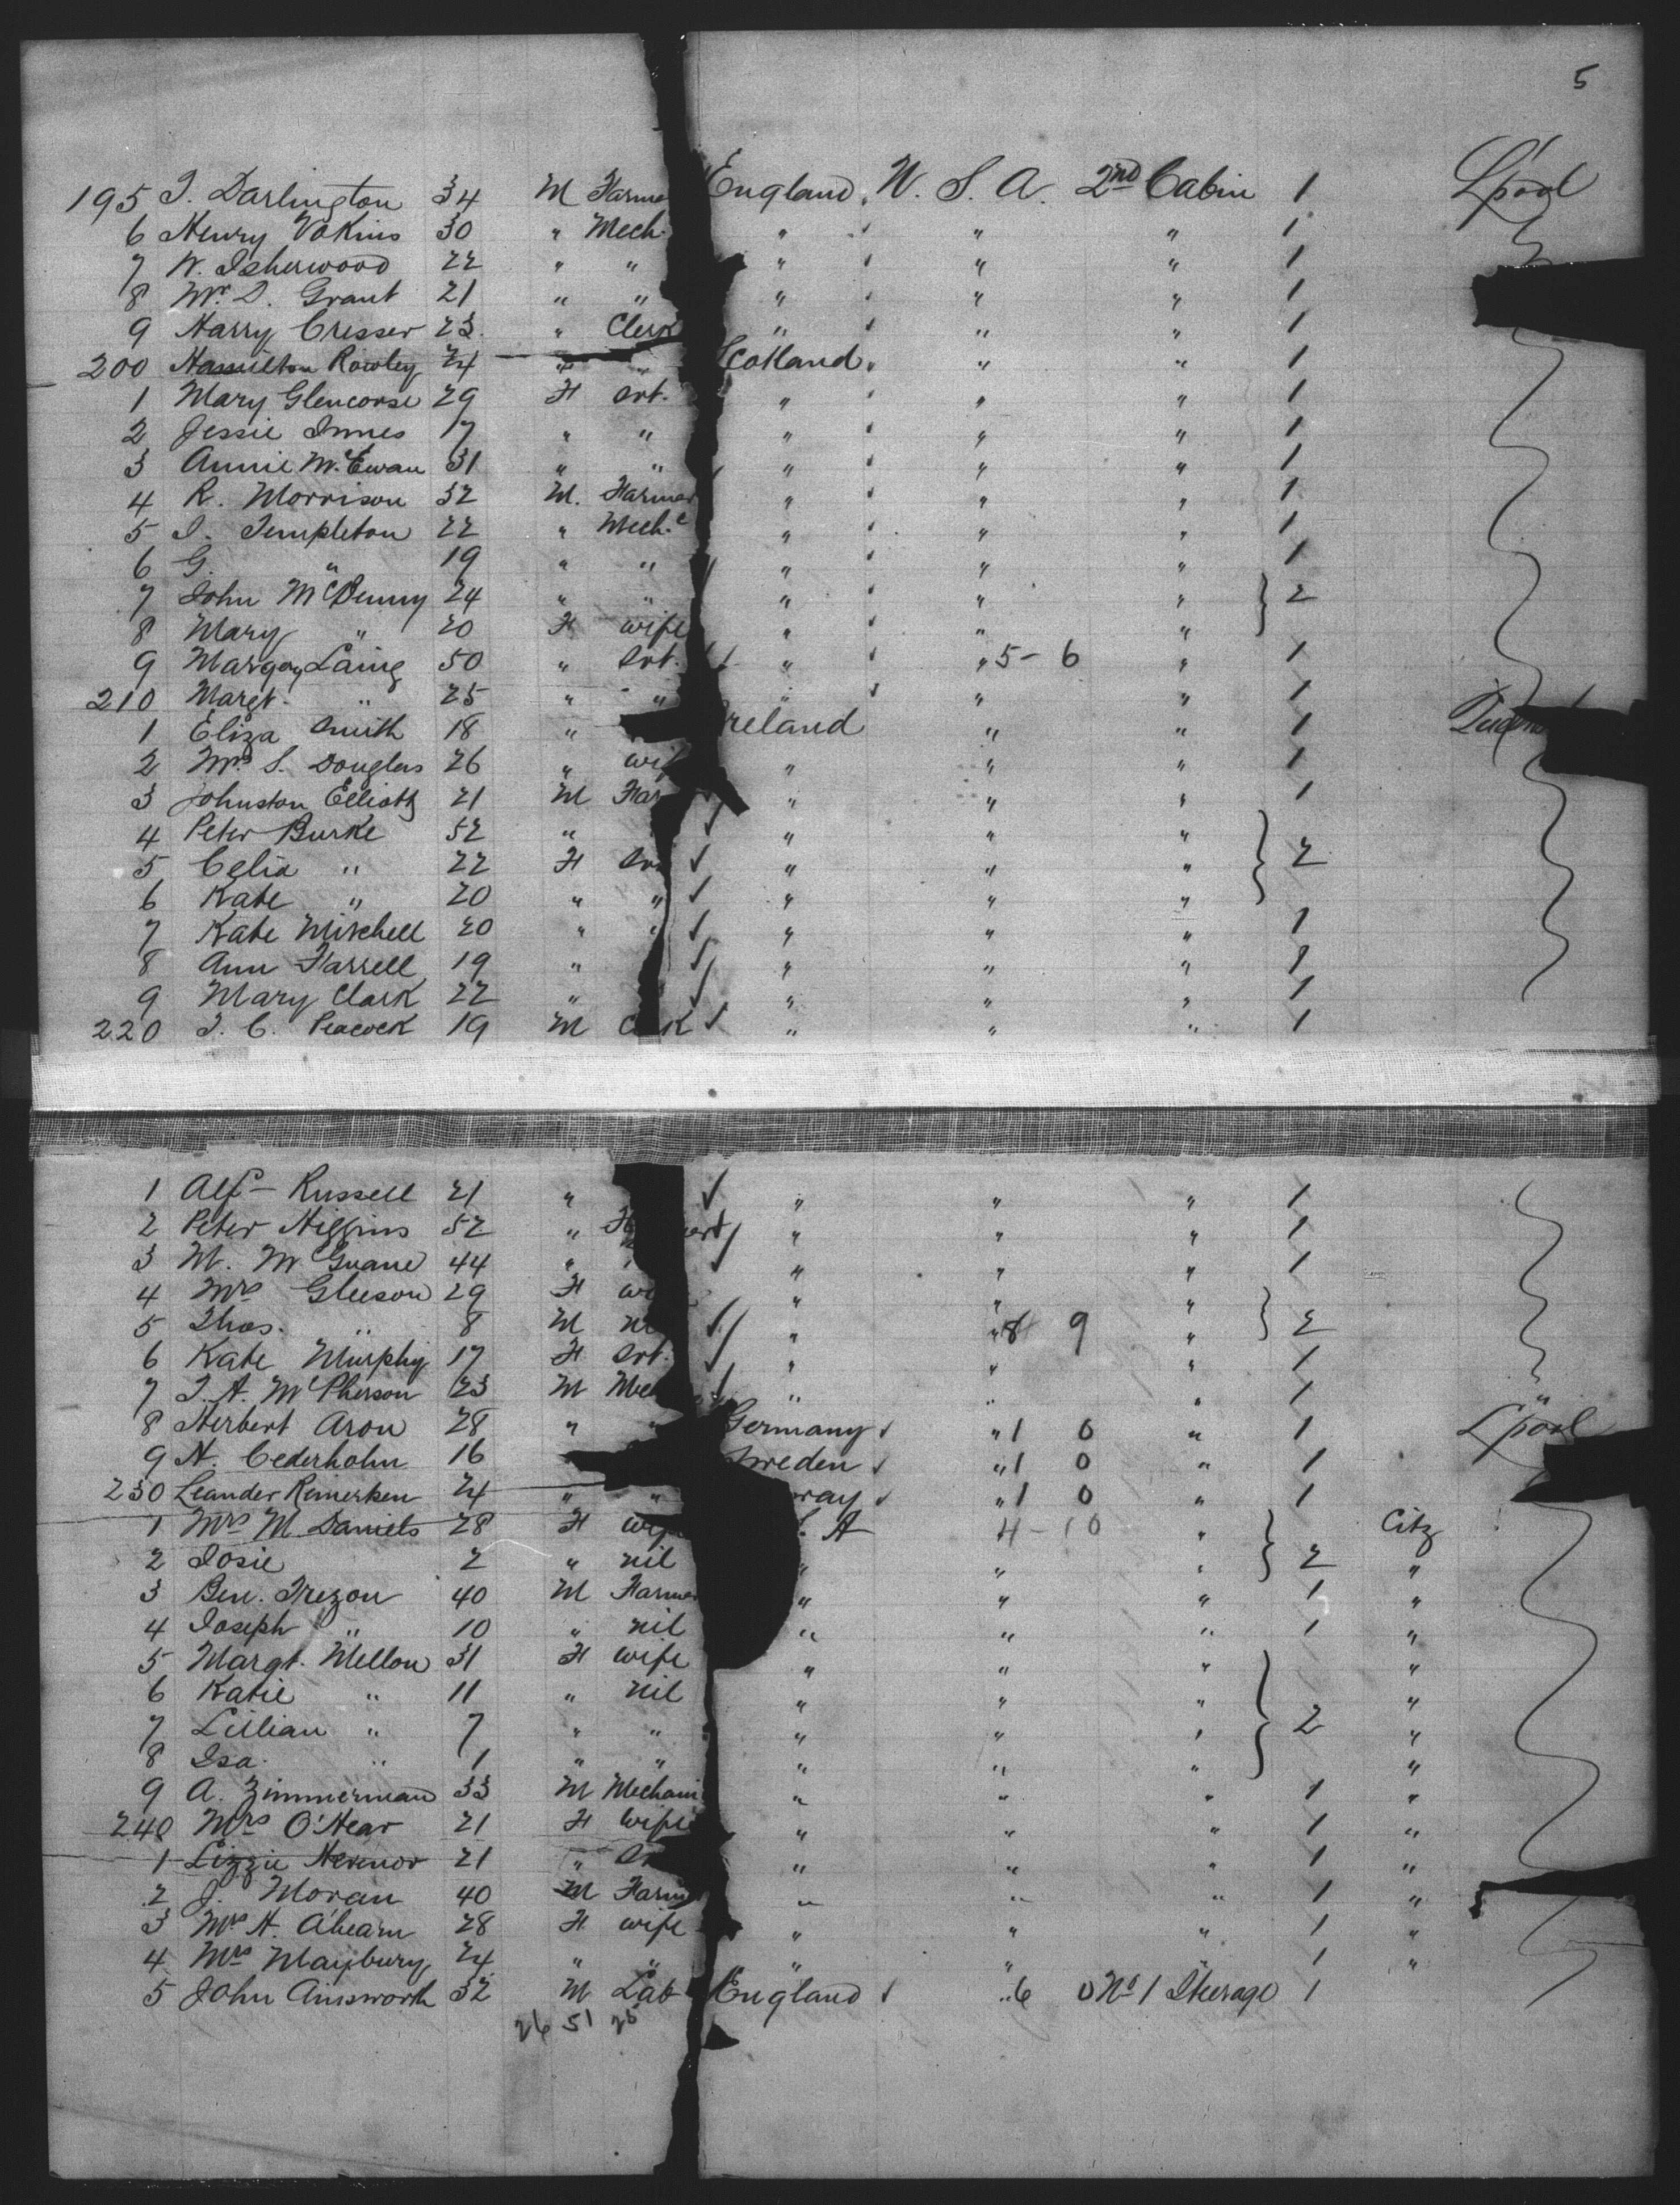 5
195 J. Darlington 34 M Farme England U. S. A. 2nd Cabin 1 L'pool
6 Henry Vokins 30 " Mech. " " " 1
7 W. Isherwood 22 " " " " " 1
8 Wm. D. Grant 21 " " " " " 1
9 Harry Cresser 23 " Clerk " " " 1
200 Hamilton Rowley 24 " " Scotland " " 1
1 Mary Glencorse 29 F Svt. " " " 1
2 Jessie Innes 17 " " " " " 1
3 Annie McEwan 31 " " " " " 1
4 R. Morrison 32 M. Farmer " " " 1
5 J. Templeton 22 " Mech.c " " " 1
6 G. " 19 " " " " " 1
7 John McBenny 24 " " " " " 2
8 Mary " 20 F wife " " "
9 Laing 50 " Svt. " " 5-6 " 1
210 Margt. " 25 " " " " " 1
1 Eliza Smith 18 " reland " " 1
2 Mrs S. Douglas 26 " wif " " " 1
3 Johnston Elliott 21 M Far " " " 1
4 Peter Burke 52 " " " " 2
5 Celia " 22 F Sv " " "
6 Kate " 20 " " " " "
7 Kate Mitchell 20 " " " " " 1
8 Ann Farrell 19 " " " " 1
9 Mary Clark 22 " " " " 1
220 J. C. Peacock 19 M C k " " " 1
1 Alf- Russell 21 " " " " 1
2 Peter Higgins 52 " " " " 1
3 M. McGuane 44 " " " " 1
4 Mrs Gleeson 29 F wi " " " 2
5 Thos. " 8 M ni " " 8 9 "
6 Kate Murphy 17 F Svt. " " " 1
7 J. A. McPherson 23 M Mec " " " 1 "
8 Herbert Aron 28 " " Germany " 1 0 " 1 L'pool
9 N. Cederholm 16 Sweden " 1 0 " 1
230 Leander Reinertsen 24 " " way " 1 0 " 1
1 Mrs M Daniels 28 F wife . A 4-10 " 2 Citz
2 Josie 2 " nil " " " "
3 Ben. Trezon 40 M Farmer " " " 1 "
4 Joseph " 10 " nil " " " 1 "
5 Margt. Mellon 31 F wife " " " 2 "
6 Katie " 11 " nil " " " "
7 Lillian " 7 " " " " " "
8 Isa. " 1 " " " " " "
9 A. Zimmerman 33 M Mechani " " " 1 "
240 Mrs O'Hear 21 F wife " " " 1 "
1 Lizzie 21 " S " " " 1 "
2 J. Moran 40 M Farm " " " 1 "
3 Mrs H. Ahearn 28 F wife " " " 1 "
4 Mrs Maybury 24 " " " " " 1 "
5 John Ainsworth 32 M Lab England " 6 0 No 1 Steerage 1
26 51 25